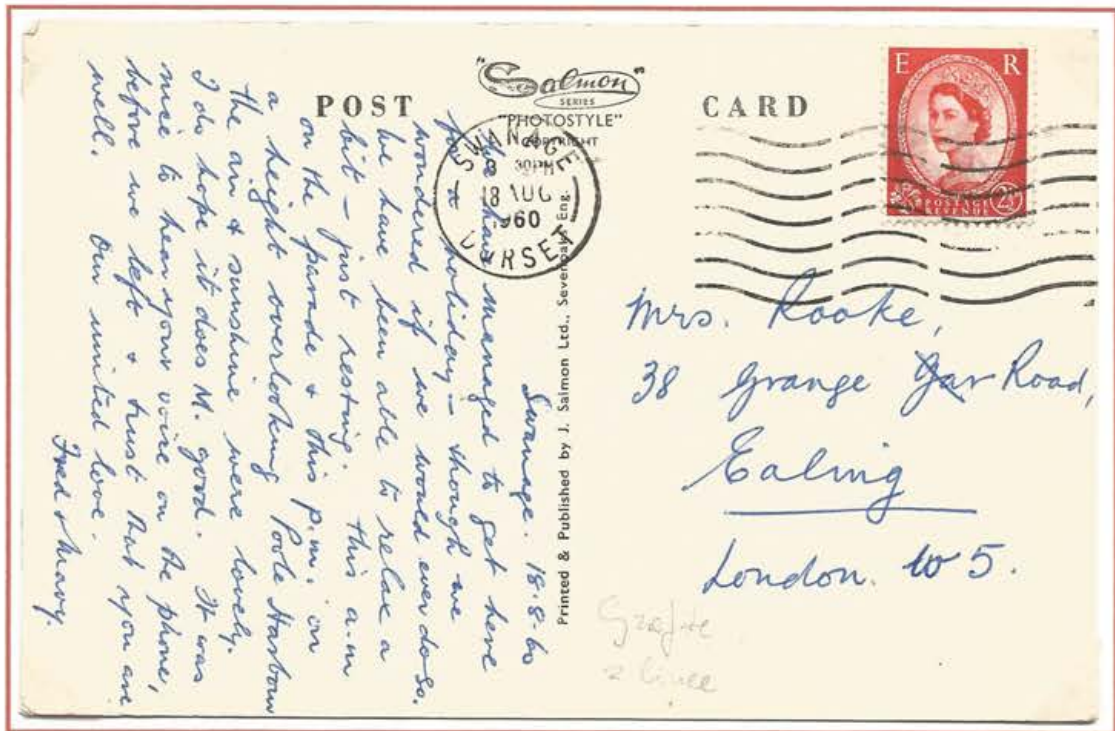 POST CARD
"Salmon"
SERIES
"PHOTOSTYLE"
COPYRIGHT
SWANAGE
3 30PM
18 AUG
1960
DORSET
E R
POSTAGE
REVENUE
2½D
Printed & Published by J. Salmon Ltd., Sevenoaks, Eng.
Swanage. 18.8.60
We have managed to get here
for a holiday – though we
wondered if we would ever do so.
We have been able to relax a
bit – just resting. this a.m
on the parade & this p.m. on
a height overlooking Poole Harbour
the air & sunshine were lovely.
I do hope it does M. good. It was
nice to hear your voice on the phone,
before we left & trust that you are
well. Our united love.
Fred & Mavy.
Mrs. Rooke,
38 Grange Road,
Ealing
London. W5.
Grafite
2 linee